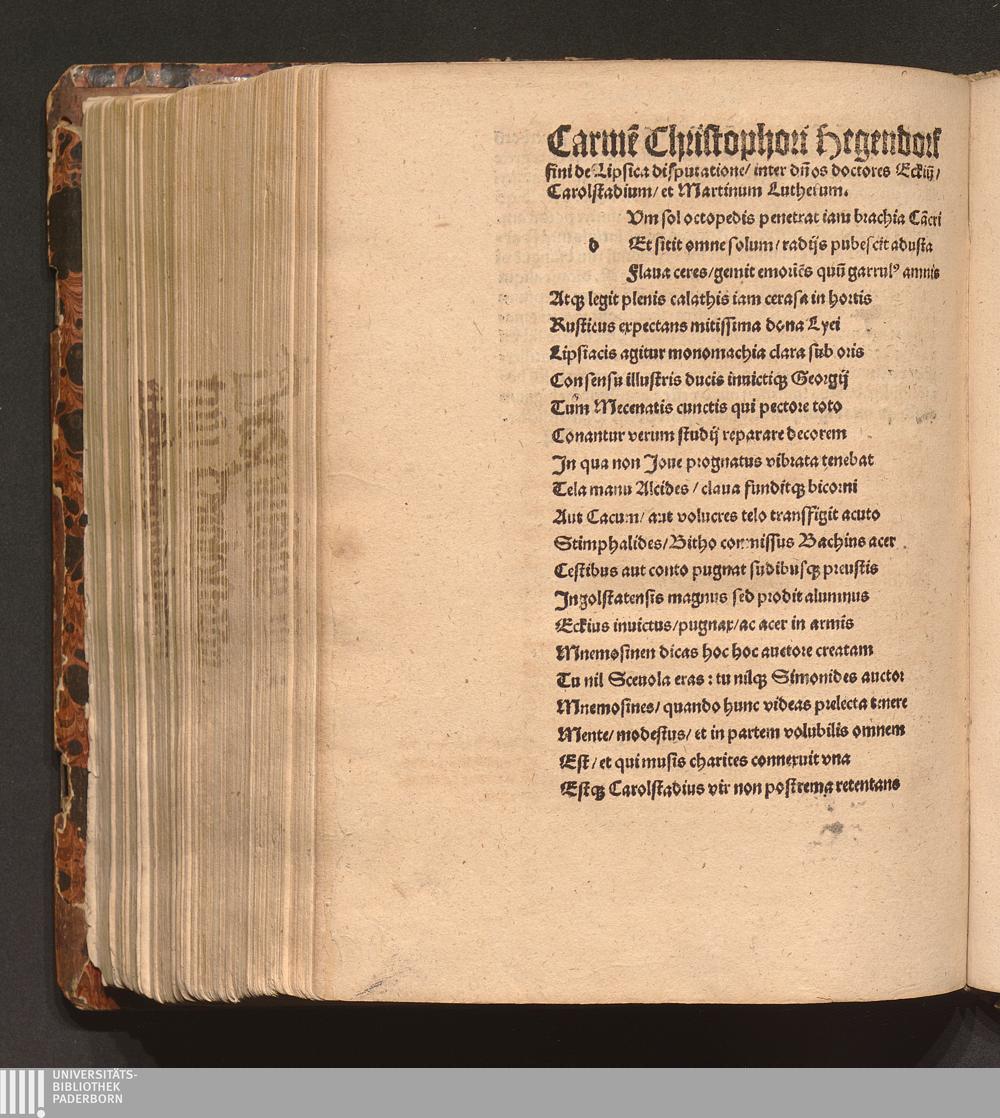 Carmē Christophori Hegendorf
fini de Lipsica disputatione/ inter dn̄os doctores Eckiū/
Carolstadium/ et Martinum Lutherum.
Vm sol octopedis penetrat iam brachia Cācri
d Et sitit omne solum/ radijs pubescit adusta
Flaua ceres/ gemit emoriēs quū garrulꝰ amnis
Atqꝫ legit plenis calathis iam cerasa in hortis
Rusticus expectans mitissima dona Lyei
Lipsiacis agitur monomachia clara sub oris
Consensu illustris ducis inuictiqꝫ Georgij
Tum Mecenatis cunctis qui pectore toto
Conantur verum studij reparare decorem
In qua non Ioue prognatus vibrata tenebat
Tela manu Alcides/ claua funditqꝫ bicorni
Aut Cacum/ aut volucres telo transfigit acuto
Stimphalides/ Bitho commissus Bachius acer
Cestibus aut conto pugnat sudibusqꝫ preustis
Ingolstatensis magnus sed prodit alumnus
Eckius inuictus/ pugnax/ ac acer in armis
Mnemosinen dicas hoc hoc auctore creatam
Tu nil Sceuola eras: tu nilqꝫ Simonides auctor
Mnemosines/ quando hunc videas prelecta tenere
Mente/ modestus/ et in partem volubilis omnem
Est/ et qui musis charites connexuit vna
Estqꝫ Carolstadius vir non postrema retentans
UNIVERSITÄTS-
BIBLIOTHEK
PADERBORN